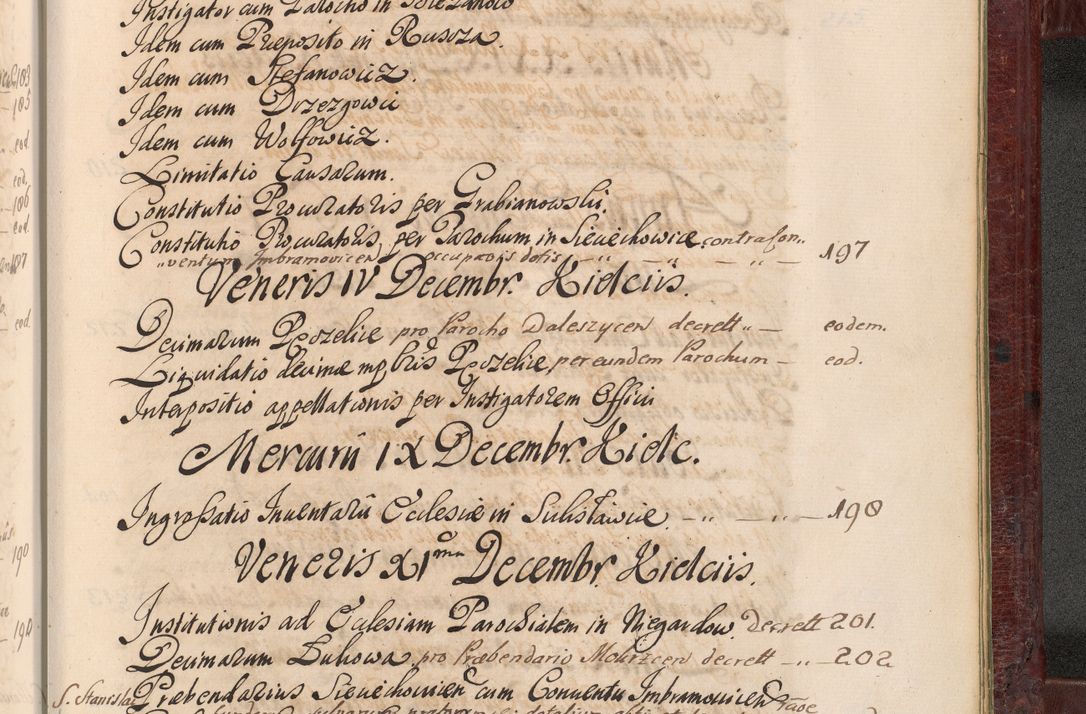 Instigator cum Parocho in Biezanow
Idem cum Præposito in Rusoza.
Idem cum Stefanowicz.
Idem cum Drzezgowic
Idem cum Wolfowicz.
Limitatio Causarum.
Constitutio Procuratoris per Grabianowski.
Constitutio Procuratoris, per Parochum in Sieciechowice contra Con„ 197
„ventum Imbramovicen occupatois dotis — „ — „ — „ —
Veneris IV Decembr. Kielciis.
Decimarum Pcozelice pro Parocho Daleszycen decrett „ — eodem.
Liquidatio decimæ Pcozelice, per eundem Parochum — eod.
Interpositio appellationis per Instigatorem Officii
Mercurii IX Decembr. Kielc.
Ingrossatio Inventarii Ecclesiæ in Sulisławice — „ — „ — 198
Veneris XIma Decembr. Kielciis.
Institutionis ad Ecclesiam Parochialem in Niegardow. decrett 201.
Decimarum Lukowa pro Præbendario Mokrzcen decrett — „ — 202
S. Stanislai Præbendarius Sieciechovicen cum Conventu Imbramovicen
183
185
eod.
eod.
186
eod.
187
eod.
190
190